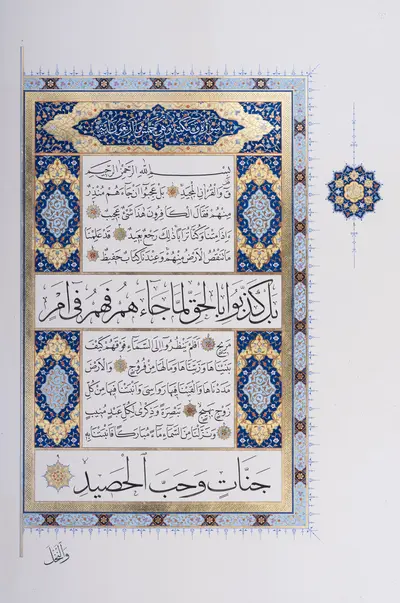 سورة ق مكية وهي خمس وأربعون آية
بِسْمِ اللهِ الرَّحْمٰنِ الرَّحِيمِ
قٓ وَالْقُرْآنِ الْمَجِيدِ بَلْ عَجِبُوا أَنْ جَاءَهُمْ مُنْذِرٌ
مِنْهُمْ فَقَالَ الْكَافِرُونَ هٰذَا شَيْءٌ عَجِيبٌ
أَإِذَا مِتْنَا وَكُنَّا تُرَابًا ذٰلِكَ رَجْعٌ بَعِيدٌ قَدْ عَلِمْنَا
مَا تَنْقُصُ الْأَرْضُ مِنْهُمْ وَعِنْدَنَا كِتَابٌ حَفِيظٌ
بَلْ كَذَّبُوا بِالْحَقِّ لَمَّا جَاءَهُمْ فَهُمْ فِي أَمْرٍ
مَرِيجٍ أَفَلَمْ يَنْظُرُوا إِلَى السَّمَاءِ فَوْقَهُمْ كَيْفَ
بَنَيْنَاهَا وَزَيَّنَّاهَا وَمَا لَهَا مِنْ فُرُوجٍ وَالْأَرْضَ
مَدَدْنَاهَا وَأَلْقَيْنَا فِيهَا رَوَاسِيَ وَأَنْبَتْنَا فِيهَا مِنْ كُلِّ
زَوْجٍ بَهِيجٍ تَبْصِرَةً وَذِكْرَى لِكُلِّ عَبْدٍ مُنِيبٍ
وَنَزَّلْنَا مِنَ السَّمَاءِ مَاءً مُبَارَكًا فَأَنْبَتْنَا بِهِ
جَنَّاتٍ وَحَبَّ الْحَصِيدِ
وَالنَّخْلَ